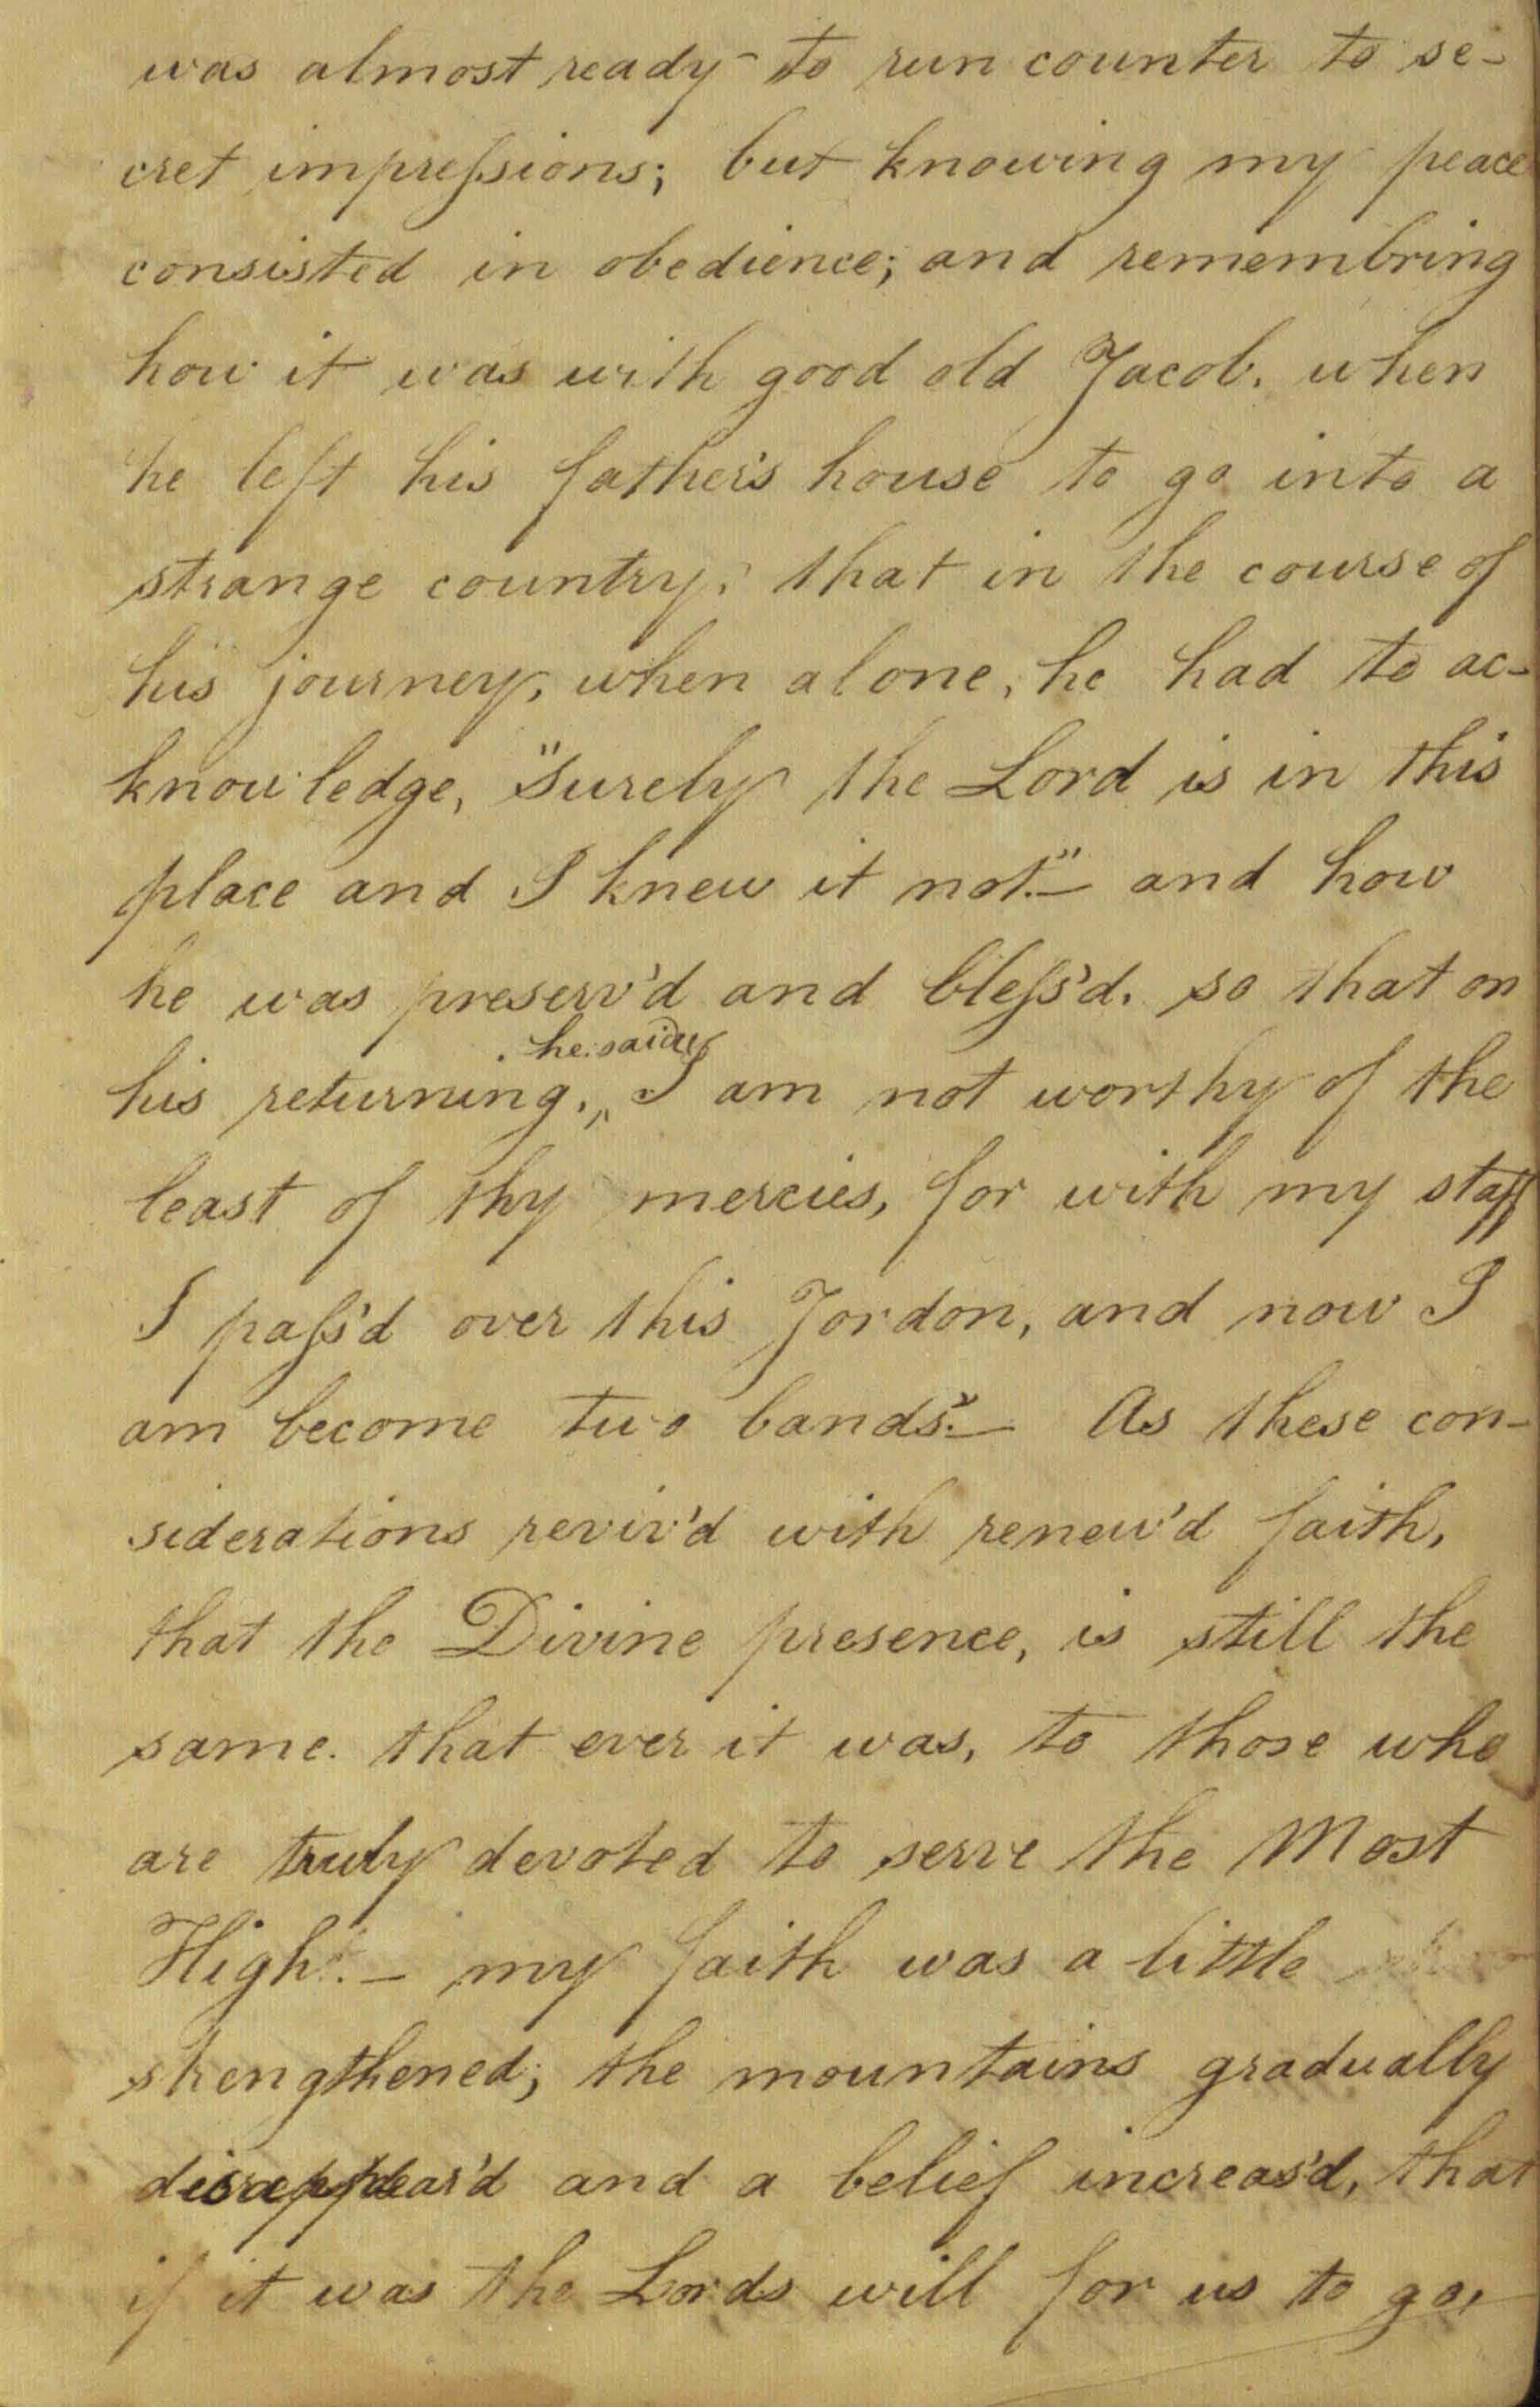 was almost ready to run counter to se-
cret impreſsions; but knowing my peace
consisted in obedience; and remembring
how it was with good old Jacob. when
he left his father's house to go into a
strange country, that in the course of
his journey, when alone, he had to ac-
knowledge, "surely the Lord is in this
place and I knew it not."— and how
he was preserv'd and bleſs'd. so that on
he said
his returning, „ I am not worthy of the
least of thy mercies, for with my staff
I paſs'd over this Jordon, and now I
am become two bands."— As these con-
siderations reviv'd with renew'd faith,
that the Divine presence, is still the
same. that ever it was, to those who
are truly devoted to serve the Most
High. — my faith was a little
strengthened; the mountains gradually
disappear'd and a belief increas'd, that
if it was the Lords will for us to go,